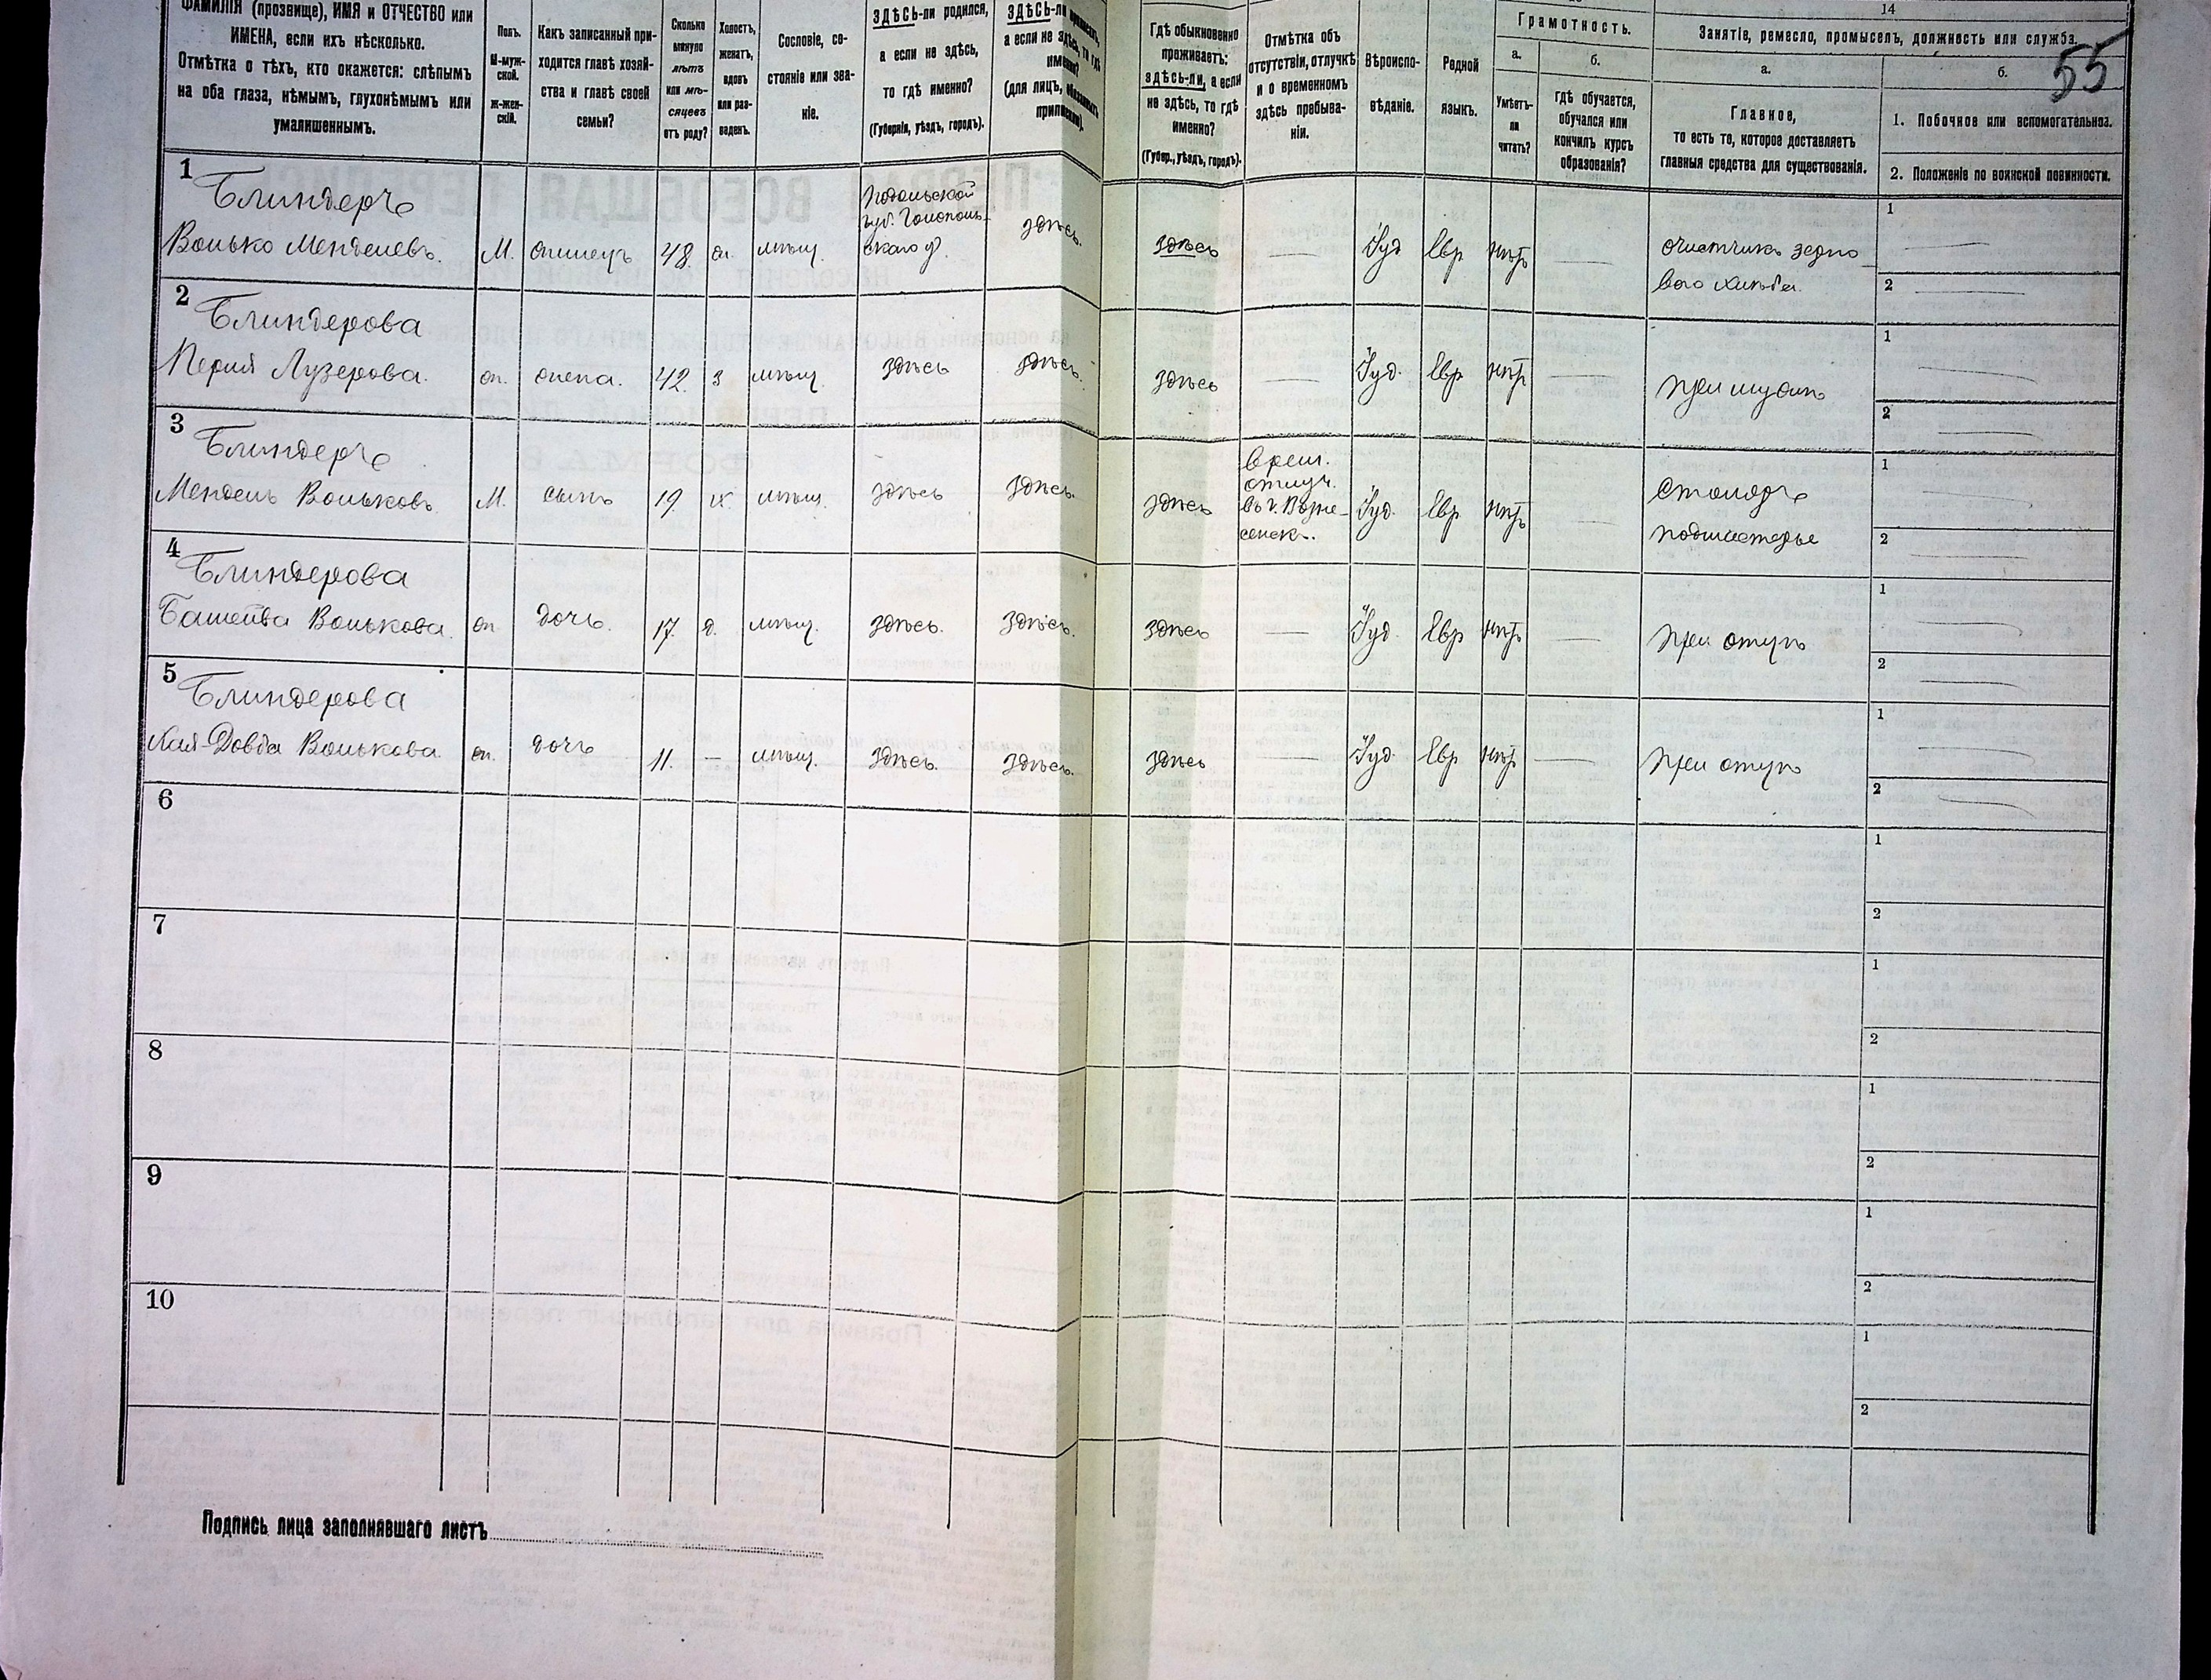 ФАМИЛІЯ (прозвище), ИМЯ и ОТЧЕСТВО или
ИМЕНА, если ихъ нѣсколько.
Отмѣтка о тѣхъ, кто окажется: слѣпымъ
на оба глаза, нѣмымъ, глухонѣмымъ или
умалишеннымъ.
Полъ.
М-муж-
ской.
ж-жен-
скій.
Какъ записанный при-
ходится главѣ хозяй-
ства и главѣ своей
семьи?
Сколько
минуло
лѣтъ
или мѣ-
сяцевъ
отъ роду?
Холостъ,
женатъ,
вдовъ
или раз-
веденъ.
Сословіе, со-
стояніе или зва-
ніе.
ЗДѢСЬ-ли родился,
а если не здѣсь,
то гдѣ именно?
(Губернія, уѣздъ, городъ).
ЗДѢСЬ-ли
а если не здѣсь, то гдѣ
(для лицъ, обязанныхъ
Гдѣ обыкновенно
проживаетъ:
здѣсь-ли, а если
не здѣсь, то гдѣ
именно?
(Губер., уѣздъ, городъ).
Отмѣтка объ
отсутствіи, отлучкѣ
и о временномъ
здѣсь пребыва-
ніи.
Вѣроиспо-
вѣданіе.
Родной
языкъ.
Грамотность.
а.
Умѣетъ-
ли
читать?
б.
Гдѣ обучается,
обучался или
кончилъ курсъ
образованія?
14
Занятіе, ремесло, промыселъ, должность или служба.
55
а.
Главное,
то есть то, которое доставляетъ
главныя средства для существованія.
б.
1. Побочное или вспомогательное.
2. Положеніе по воинской повинности.
1
Блиндеръ
Волько Менделевъ. М. 48. мѣщ.
Подольской
губ.
скаго у.
здѣсь.
здѣсь Іуд Евр нѣтъ
очистчикъ зерно
вого хлѣба.
1
2
2
Блиндерова
Перля Лузерова. 42. з мѣщ. здѣсь здѣсь.
здѣсь Іуд. Евр нѣтъ
1
2
3
Блиндеръ
Мендель Вольковъ. М. сынъ 19. х. мѣщ. здѣсь здѣсь.
здѣсь
врем.
отлуч.
въ г. Возне-
сенскъ.
Іуд. Евр нѣтъ
столяръ
подмастерье
1
2
4
Блиндерова
Башейва Волькова. дочь. 17. д. мѣщ. здѣсь. здѣсь.
здѣсь Іуд. Евр нѣтъ при отцѣ
1
2
5
Блиндерова
Хая-Довба Волькова. дочь 11. — мѣщ. здѣсь. здѣсь.
здѣсь Іуд Евр нѣтъ при отцѣ
1
2
6
1
2
7
1
2
8
1
2
9
1
2
10
1
2
Подпись лица заполнявшаго листъ